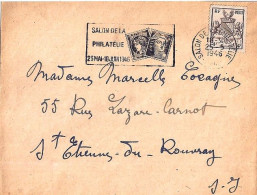 SALON DE LA
PHILATÉLIE
25 MAI-10 JUIN 1946
SALON DE
1946
Madame Marcelle Cocagne
55 Rue Lazare-Carnot
St Etienne-du-Rouvray
S-I